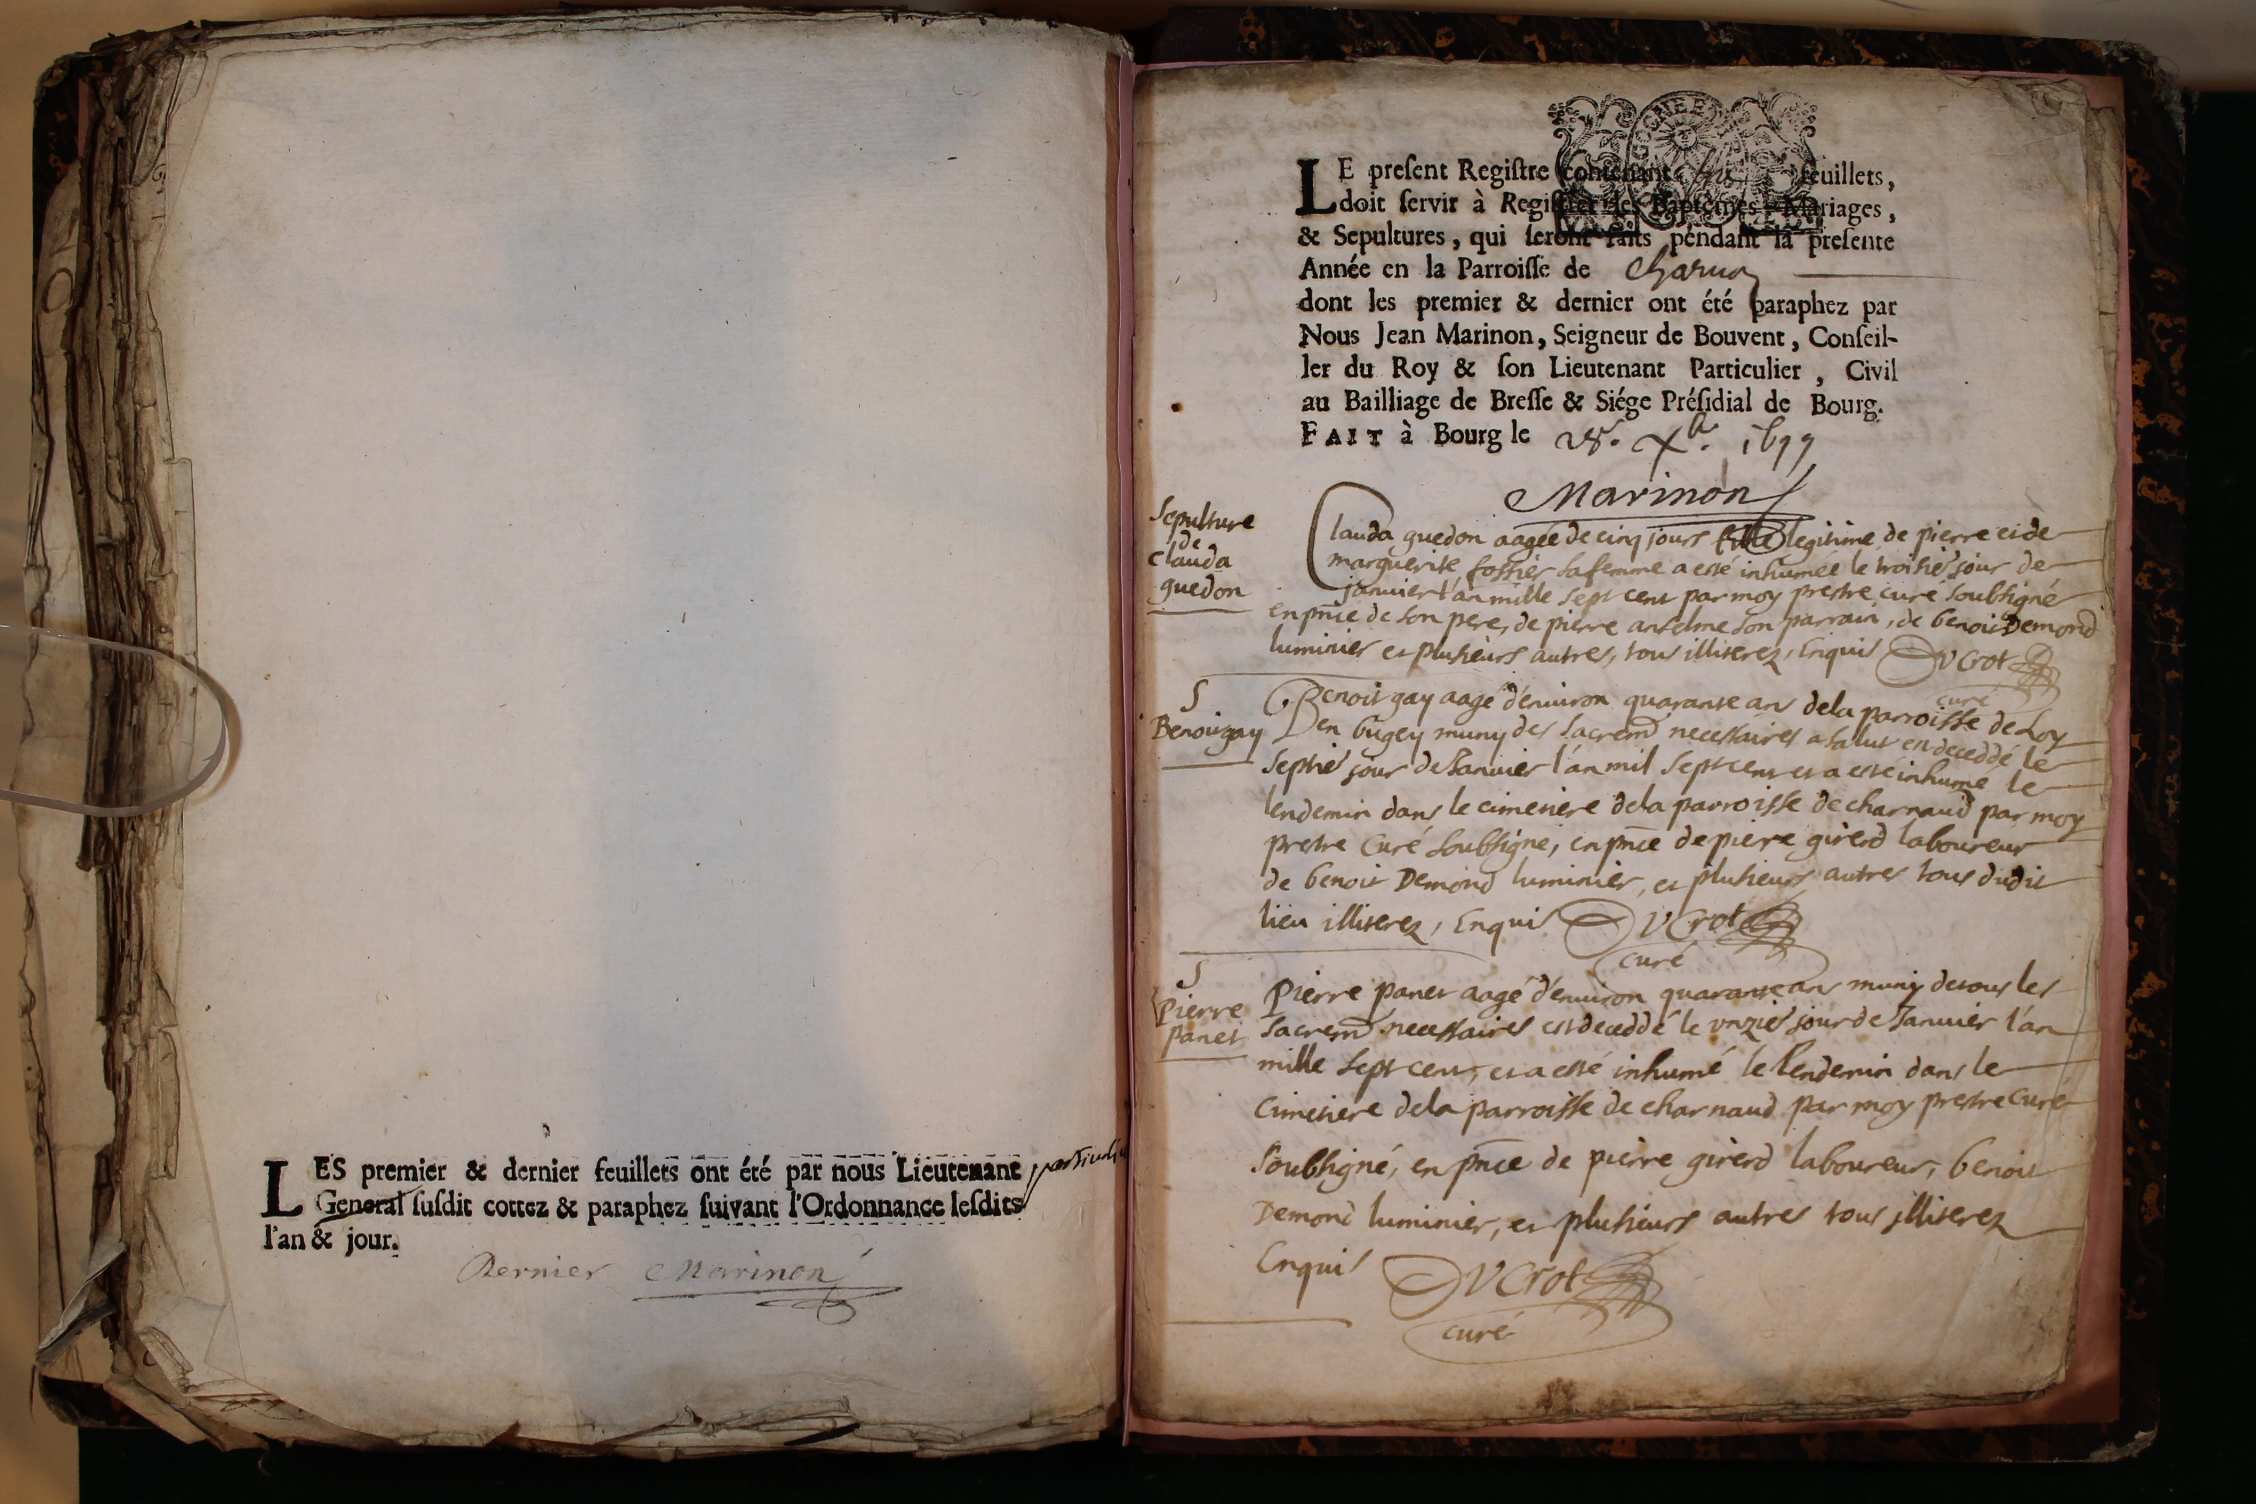 LES premier & dernier feuillets ont été par nous Lieutenant particulier
General susdit cottez & paraphez suivant l'Ordonnance lesdits
l'an & jour.
Dernier Marinon
LE present Registre contenant feuillets,
doit servir à Registrer les Baptêmes Mariages,
& Sepultures, qui seront faits pendant la presente
Année en la Parroisse de
dont les premier & dernier ont été paraphez par
Nous Jean Marinon, Seigneur de Bouvent, Conseil-
ler du Roy & son Lieutenant Particulier, Civil
au Bailliage de Bresse & Siége Présidial de Bourg.
FAIT à Bourg le 28e. Xbr. 1699
Marinon
Sepulture
de
Clauda
guedon
Clauda guedon aagée de cinq jours fille legitime de pierre et de
marguerite fossier sa femme a esté inhumée le troisié jour de
janvier l'an mille sept cent par moy prestre curé soubsigné
en pnce de son pere, de pierre anselme son parrain, de benoit Demond
luminier et plusieurs autres, tous illiterez, Enquis DuCrot
curé
S
Benoit gay
Benoit gay aagé d'enuiron quarante ans de la parroisse de Loy
en bugey muny des sacremt necessaires a salut en deceddé le
septié jour de Januier l'an mil sept cent et a esté inhumé le
lendemin dans le cimetiere de la parroisse de charnaud par moy
prestre Curé soubsigné, en pnce de piere girerd laboureur
de benoit Demond luminier, et plusieurs autres tous dudit
lieu illiterez, Enquis DuCrot
curé
S
Pierre
panet
Pierre panet aagé d'enuiron quarante ans muny de tous les
sacremt necessaires est deceddé le unzié jour de Januier l'an
mille sept cent, et a esté inhumé le lendemin dans le
Cimetiere de la parroisse de charnaud par moy prestre Curé
soubsigné, en pnce de pierre girerd laboureur, benoit
Demond luminier, et plusieurs autres tous illiterez
Enquis DuCrot
curé